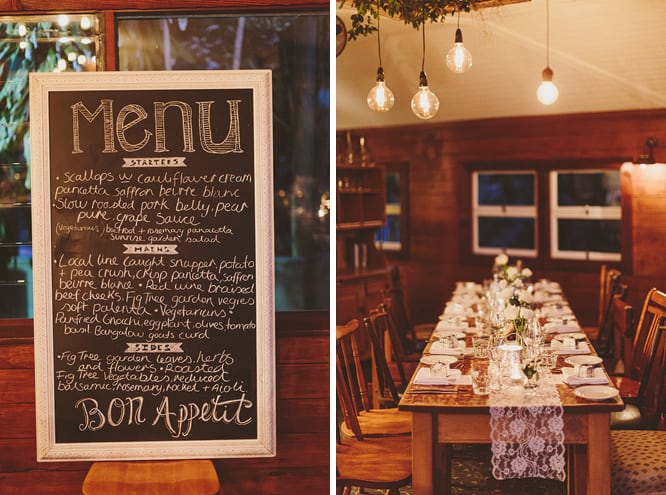 Menu
STARTERS
• Scallops w cauliflower cream
pancetta, saffron beurre blanc
• Slow roasted pork belly, pear
pure, grape sauce
(Vegetarians) beetroot + rosemary pannacotta
Sunrise garden salad
MAINS
• Local line caught snapper, potato
+ pea crush, crisp pancetta, saffron
beurre blanc • Red wine braised
beef cheeks, Fig Tree garden vegies
soft polenta • Vegetarians •
Panfried Gnochi, eggplant, olives, tomato
basil, Bangalow goats curd
SIDES
• Fig Tree garden leaves, herbs
and flowers • Roasted
Fig Tree Vegetables, reduced
balsamic, rosemary, rocket + Aioli
BON Appetit